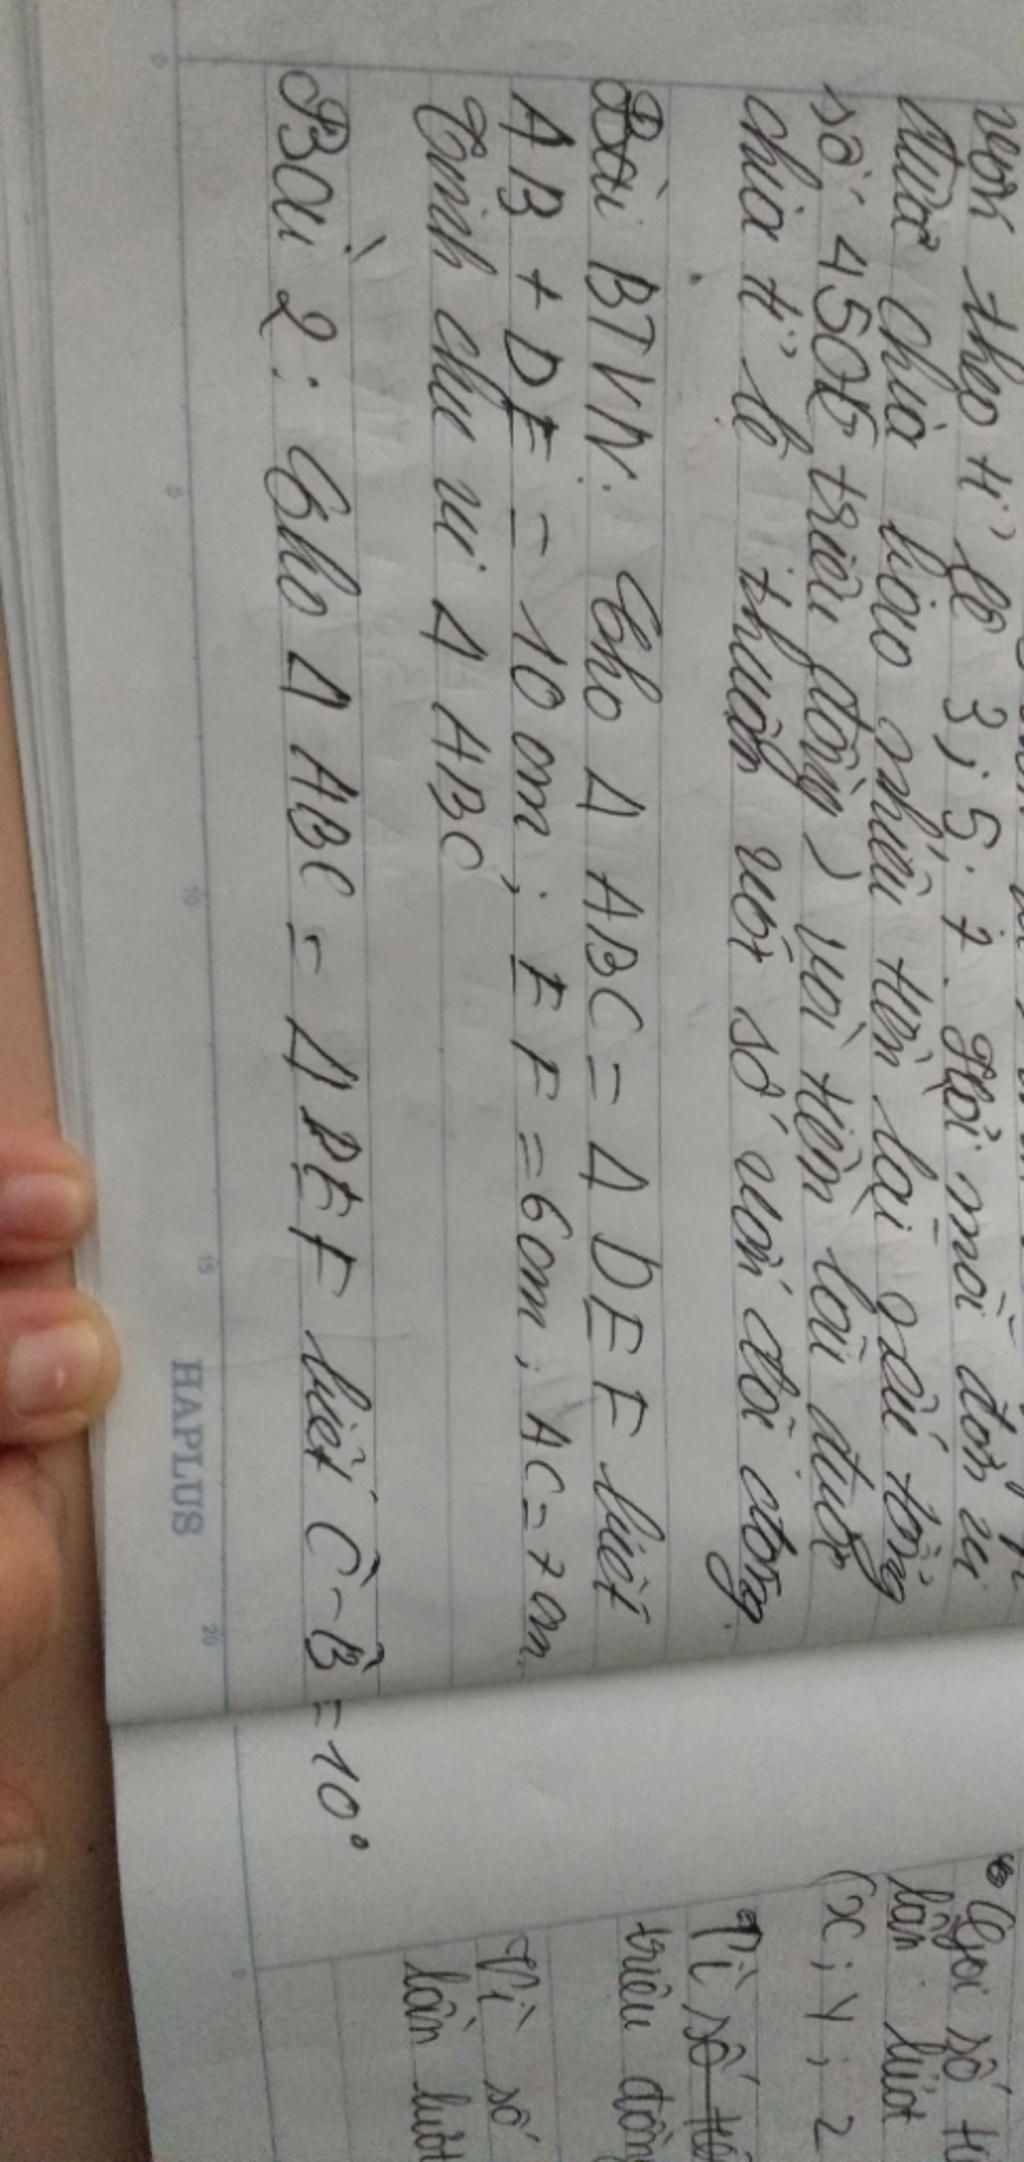 vốn theo tỉ lệ 3; 5; 7. Hỏi mỗi đơn vị
được chia bao nhiêu tiền lãi nếu tổng
số 450 triệu đồng) với tiền lãi được
chia tỉ lệ thuận với số vốn đã đóng.
Bài BTVN: Cho Δ ABC = Δ DEF biết
AB + DE = 10 cm; EF = 6cm; AC = 7cm.
Tính chu vi Δ ABC
Bài 2: Cho Δ ABC = Δ DEF biết Ĉ - B̂ = 10°
0 5 10 15 20
HAPLUS
Gọi số
lần lượt
(x; y; z
Vì số
triệu đồng
Vì số
lần lượt